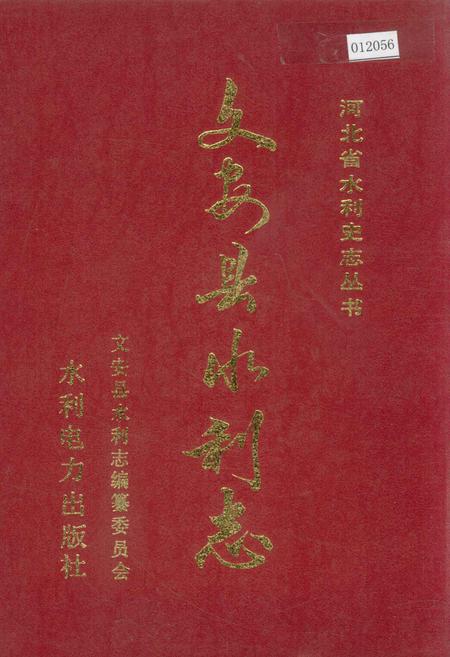 012056
河北省水利史志丛书
文安县水利志
文安县水利志编纂委员会
水利电力出版社